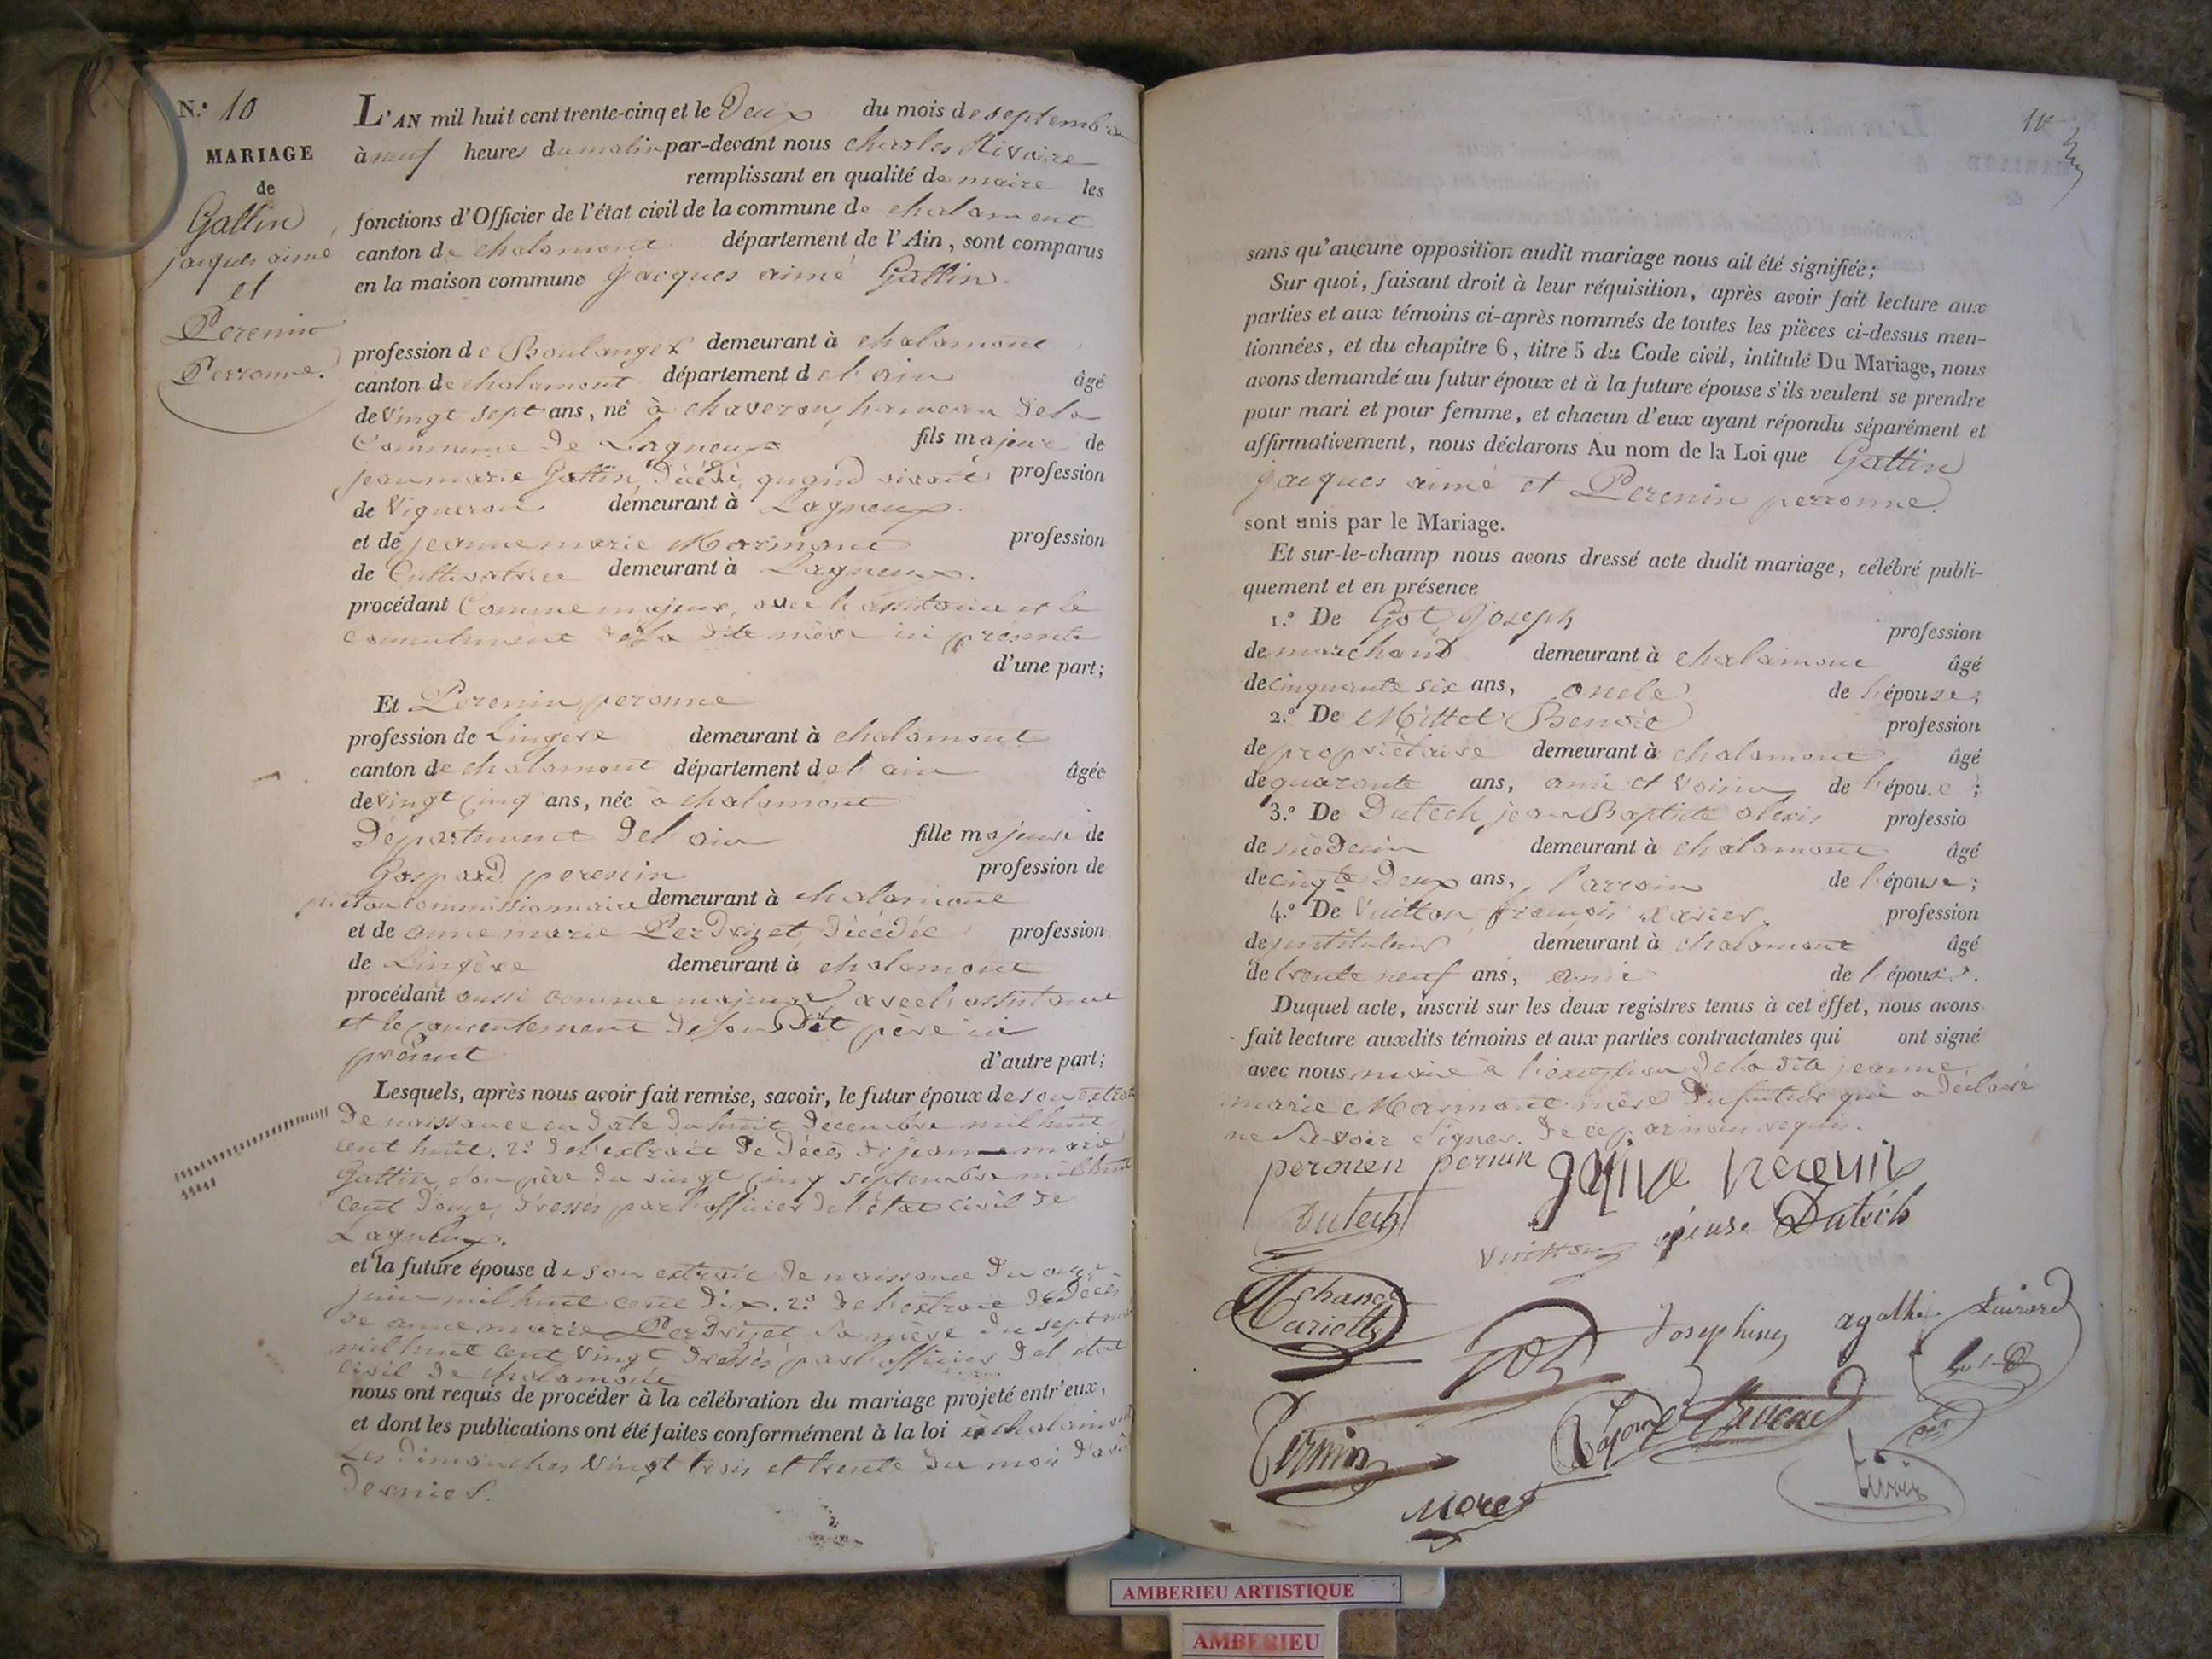 N.° 10
MARIAGE
de
Gallin
jacques aimé
et
Perenin
Perronne.
L'AN mil huit cent trente-cinq et le Deux du mois de septembre
à neuf heures du matin par-devant nous charles Rivoire
remplissant en qualité de maire les
fonctions d'Officier de l'état civil de la commune de chalamont
canton de chalamont département de l'Ain, sont comparus
en la maison commune jacques aimé Gallin.
profession de Boulanger demeurant à chalamont
canton de chalamont département de l'ain âgé
de vingt sept ans, né à chaveron, hameau dela
Commune de Lagneux fils majeur de
jean marie Gallin, Décédé, quand vivait profession
de Vigneron demeurant à Lagneux.
et de jeanne marie Marmont profession
de Cultivatrice demeurant à Lagneux.
procédant Comme majeur, avec l'assistance et le
consentement de sa dite mère ici présente
d'une part;
Et Perenin peronne
profession de Lingere demeurant à chalamont
canton de chalamont département de l'ain âgée
de vingt cinq ans, née à chalamont
Département del'ain fille majeure de
Gaspard perenin profession de
piéton commissionnaire demeurant à chalamont
et de anne marie PerDrizet, Décédée profession
de Lingère demeurant à chalamont
procédant aussi comme majeure, avec l'assistance
et le consentement de son Dit père ici
présent d'autre part;
Lesquels, après nous avoir fait remise, savoir, le futur époux de son extrait
De naissance en date du huit Decembre mil huit
cent huit. 2.° del'extrait De Décès de jean marie
Gallin, son père du vingt cinq septembre mil huit
cent Douze, Dressés par l'officier del'état civil de
Lagneux.
et la future épouse de son extrait de naissance du onze
juin mil huit cent Dix. 2.° del'extrait De Décès
de anne marie PerDrizet sa mère du sept mai
mil huit cent vingt Dressés par l'officier del'état
civil de chalamont
nous ont requis de procéder à la célébration du mariage projeté entr'eux,
et dont les publications ont été faites conformément à la loi à chalamont
Les Dimanches Vingt trois et trente du mois d'aout
Dernier.
sans qu'aucune opposition audit mariage nous ait été signifiée;
Sur quoi, faisant droit à leur réquisition, après avoir fait lecture aux
parties et aux témoins ci-après nommés de toutes les pièces ci-dessus men-
tionnées, et du chapitre 6, titre 5 du Code civil, intitulé Du Mariage, nous
avons demandé au futur époux et à la future épouse s'ils veulent se prendre
pour mari et pour femme, et chacun d'eux ayant répondu séparément et
affirmativement, nous déclarons Au nom de la Loi que Gallin
jacques aimé et Perenin perronne
sont unis par le Mariage.
Et sur-le-champ nous avons dressé acte dudit mariage, célébré publi-
quement et en présence
1.° De Got Joseph profession
de marchand demeurant à chalamont âgé
de cinquante six ans, oncle de l'épouse;
2.° De Mittet Benoit profession
de propriétaire demeurant à chalamont âgé
de quarante ans, ami et voisin de l'épouse;
3.° De Dutech jean Baptiste alexis professio
de médecin demeurant à chalamont âgé
de cinqte Deux ans, Parrain de l'épouse;
4.° De Vuitton françois xavier profession
de jnstituteur demeurant à chalamont âgé
de trente neuf ans, ami de l'époux.
Duquel acte, inscrit sur les deux registres tenus à cet effet, nous avons
fait lecture auxdits témoins et aux parties contractantes qui ont signé
avec nous maire à l'exception dela dite jeanne
marie Marmont mère du futur qui a déclaré
ne Savoir Signer. De ce par nous requis.
perouen pernin
Dutech Vuitton épouse Dutech
Got Josephine agathe
Pernin
Moret
AMBERIEU ARTISTIQUE
AMBERIEU